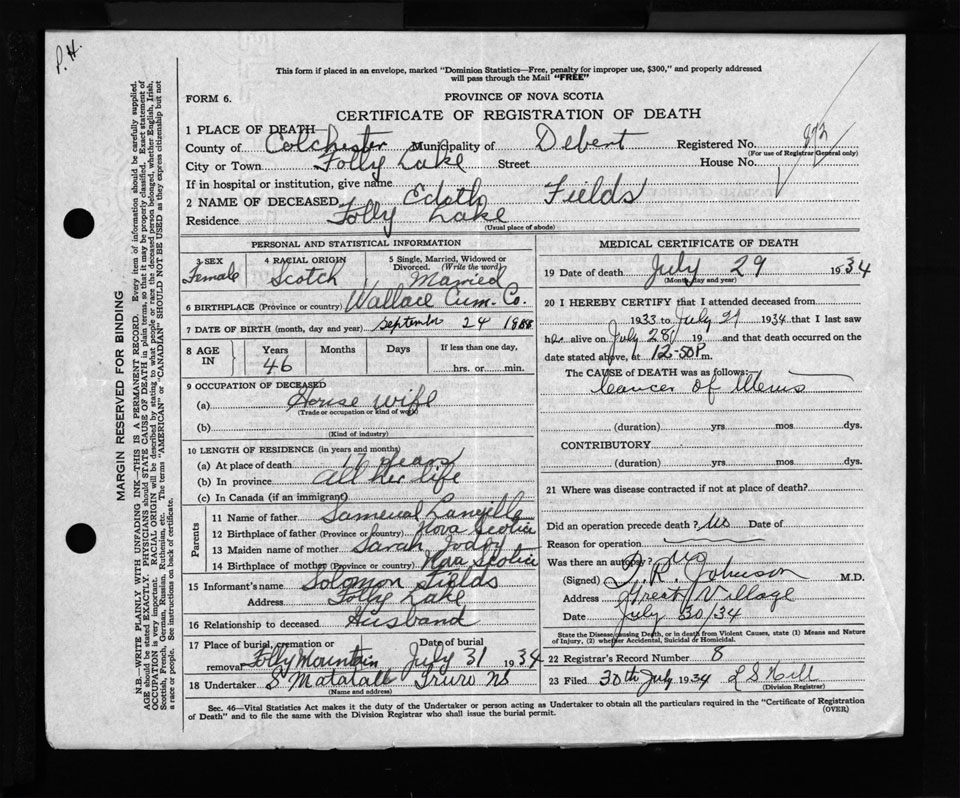 P.H.
This form if placed in an envelope, marked "Dominion Statistics—Free, penalty for improper use, $300," and properly addressed
will pass through the Mail "FREE"
FORM 6.
PROVINCE OF NOVA SCOTIA
CERTIFICATE OF REGISTRATION OF DEATH
1 PLACE OF DEATH—
County of Colchester Municipality of Debert Registered No. 872
(For use of Registrar General only)
City or Town Folly Lake Street House No.
If in hospital or institution, give name
2 NAME OF DECEASED Edith Fields
Residence Folly Lake
(Usual place of abode)
PERSONAL AND STATISTICAL INFORMATION
3 SEX Female
4 RACIAL ORIGIN Scotch
5 Single, Married, Widowed or Divorced. (Write the word) Married
6 BIRTHPLACE (Province or country) Wallace Cum. Co.
7 DATE OF BIRTH (month, day and year) September 24 1888
8 AGE IN Years 46 Months Days If less than one day, hrs. or min.
9 OCCUPATION OF DECEASED
(a) House wife
(Trade or occupation or kind of work)
(b)
(Kind of industry)
10 LENGTH OF RESIDENCE (in years and months)
(a) At place of death 17 years
(b) In province All her life
(c) In Canada (if an immigrant)
Parents
11 Name of father Langille
12 Birthplace of father (Province or country) Nova Scotia
13 Maiden name of mother Sarah
14 Birthplace of mother (Province or country) Nova Scotia
15 Informant's name Solomon Fields
Address Folly Lake
16 Relationship to deceased Husband
17 Place of burial, cremation or removal Folly Mountain Date of burial July 31 1934
18 Undertaker S Matatall Truro NS
(Name and address)
MEDICAL CERTIFICATE OF DEATH
19 Date of death July 29 1934
(Month, day and year)
20 I HEREBY CERTIFY that I attended deceased from
1933 to July 29 1934 that I last saw
her alive on July 28 19 and that death occurred on the
date stated above, at 12-50 P m.
The CAUSE of DEATH was as follows:
Cancer of Uterus
(duration) yrs. mos. dys.
CONTRIBUTORY
(duration) yrs. mos. dys.
21 Where was disease contracted if not at place of death?
Did an operation precede death? No Date of
Reason for operation
Was there an autopsy? No
(Signed) R. Johnson M.D.
Address Great Village
Date July 30/34
State the Disease causing Death, or in death from Violent Causes, state (1) Means and Nature
of Injury, (2) whether Accidental, Suicidal or Homicidal.
22 Registrar's Record Number 8
23 Filed 30th July 1934 L S Hill
(Division Registrar)
Sec. 46—Vital Statistics Act makes it the duty of the Undertaker or person acting as Undertaker to obtain all the particulars required in the "Certificate of Registration
of Death" and to file the same with the Division Registrar who shall issue the burial permit.
(OVER)
MARGIN RESERVED FOR BINDING
N.B.—WRITE PLAINLY WITH UNFADING INK—THIS IS A PERMANENT RECORD. Every item of information should be carefully supplied.
AGE should be stated EXACTLY. PHYSICIANS should STATE CAUSE OF DEATH in plain terms, so that it may be properly classified. Exact statement of
OCCUPATION is very important. RACIAL ORIGIN will be described by stating to what people or race the deceased person belonged, whether English, Irish,
Scottish, French, German, Russian, Ruthenian, etc. The terms "AMERICAN" or "CANADIAN" SHOULD NOT BE USED as they express citizenship but not
a race or people. See instructions on back of certificate.